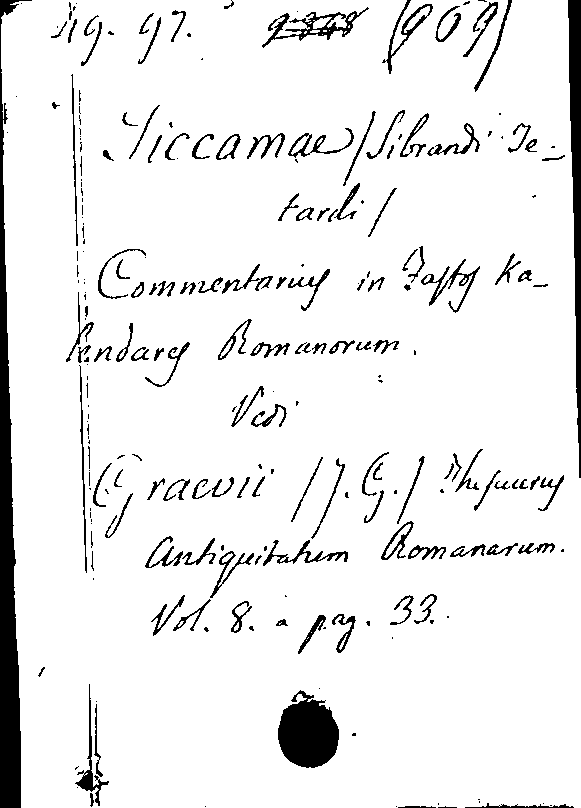 19. 97. 2348 (969)
Siccamae / Sibrandi Te-
tardi /
Commentarius in Fastos Ka-
lendares Romanorum.
Vedi
Graevii / J. G. / Thesaurus
Antiquitatum Romanarum.
Vol. 8. a pag. 33.